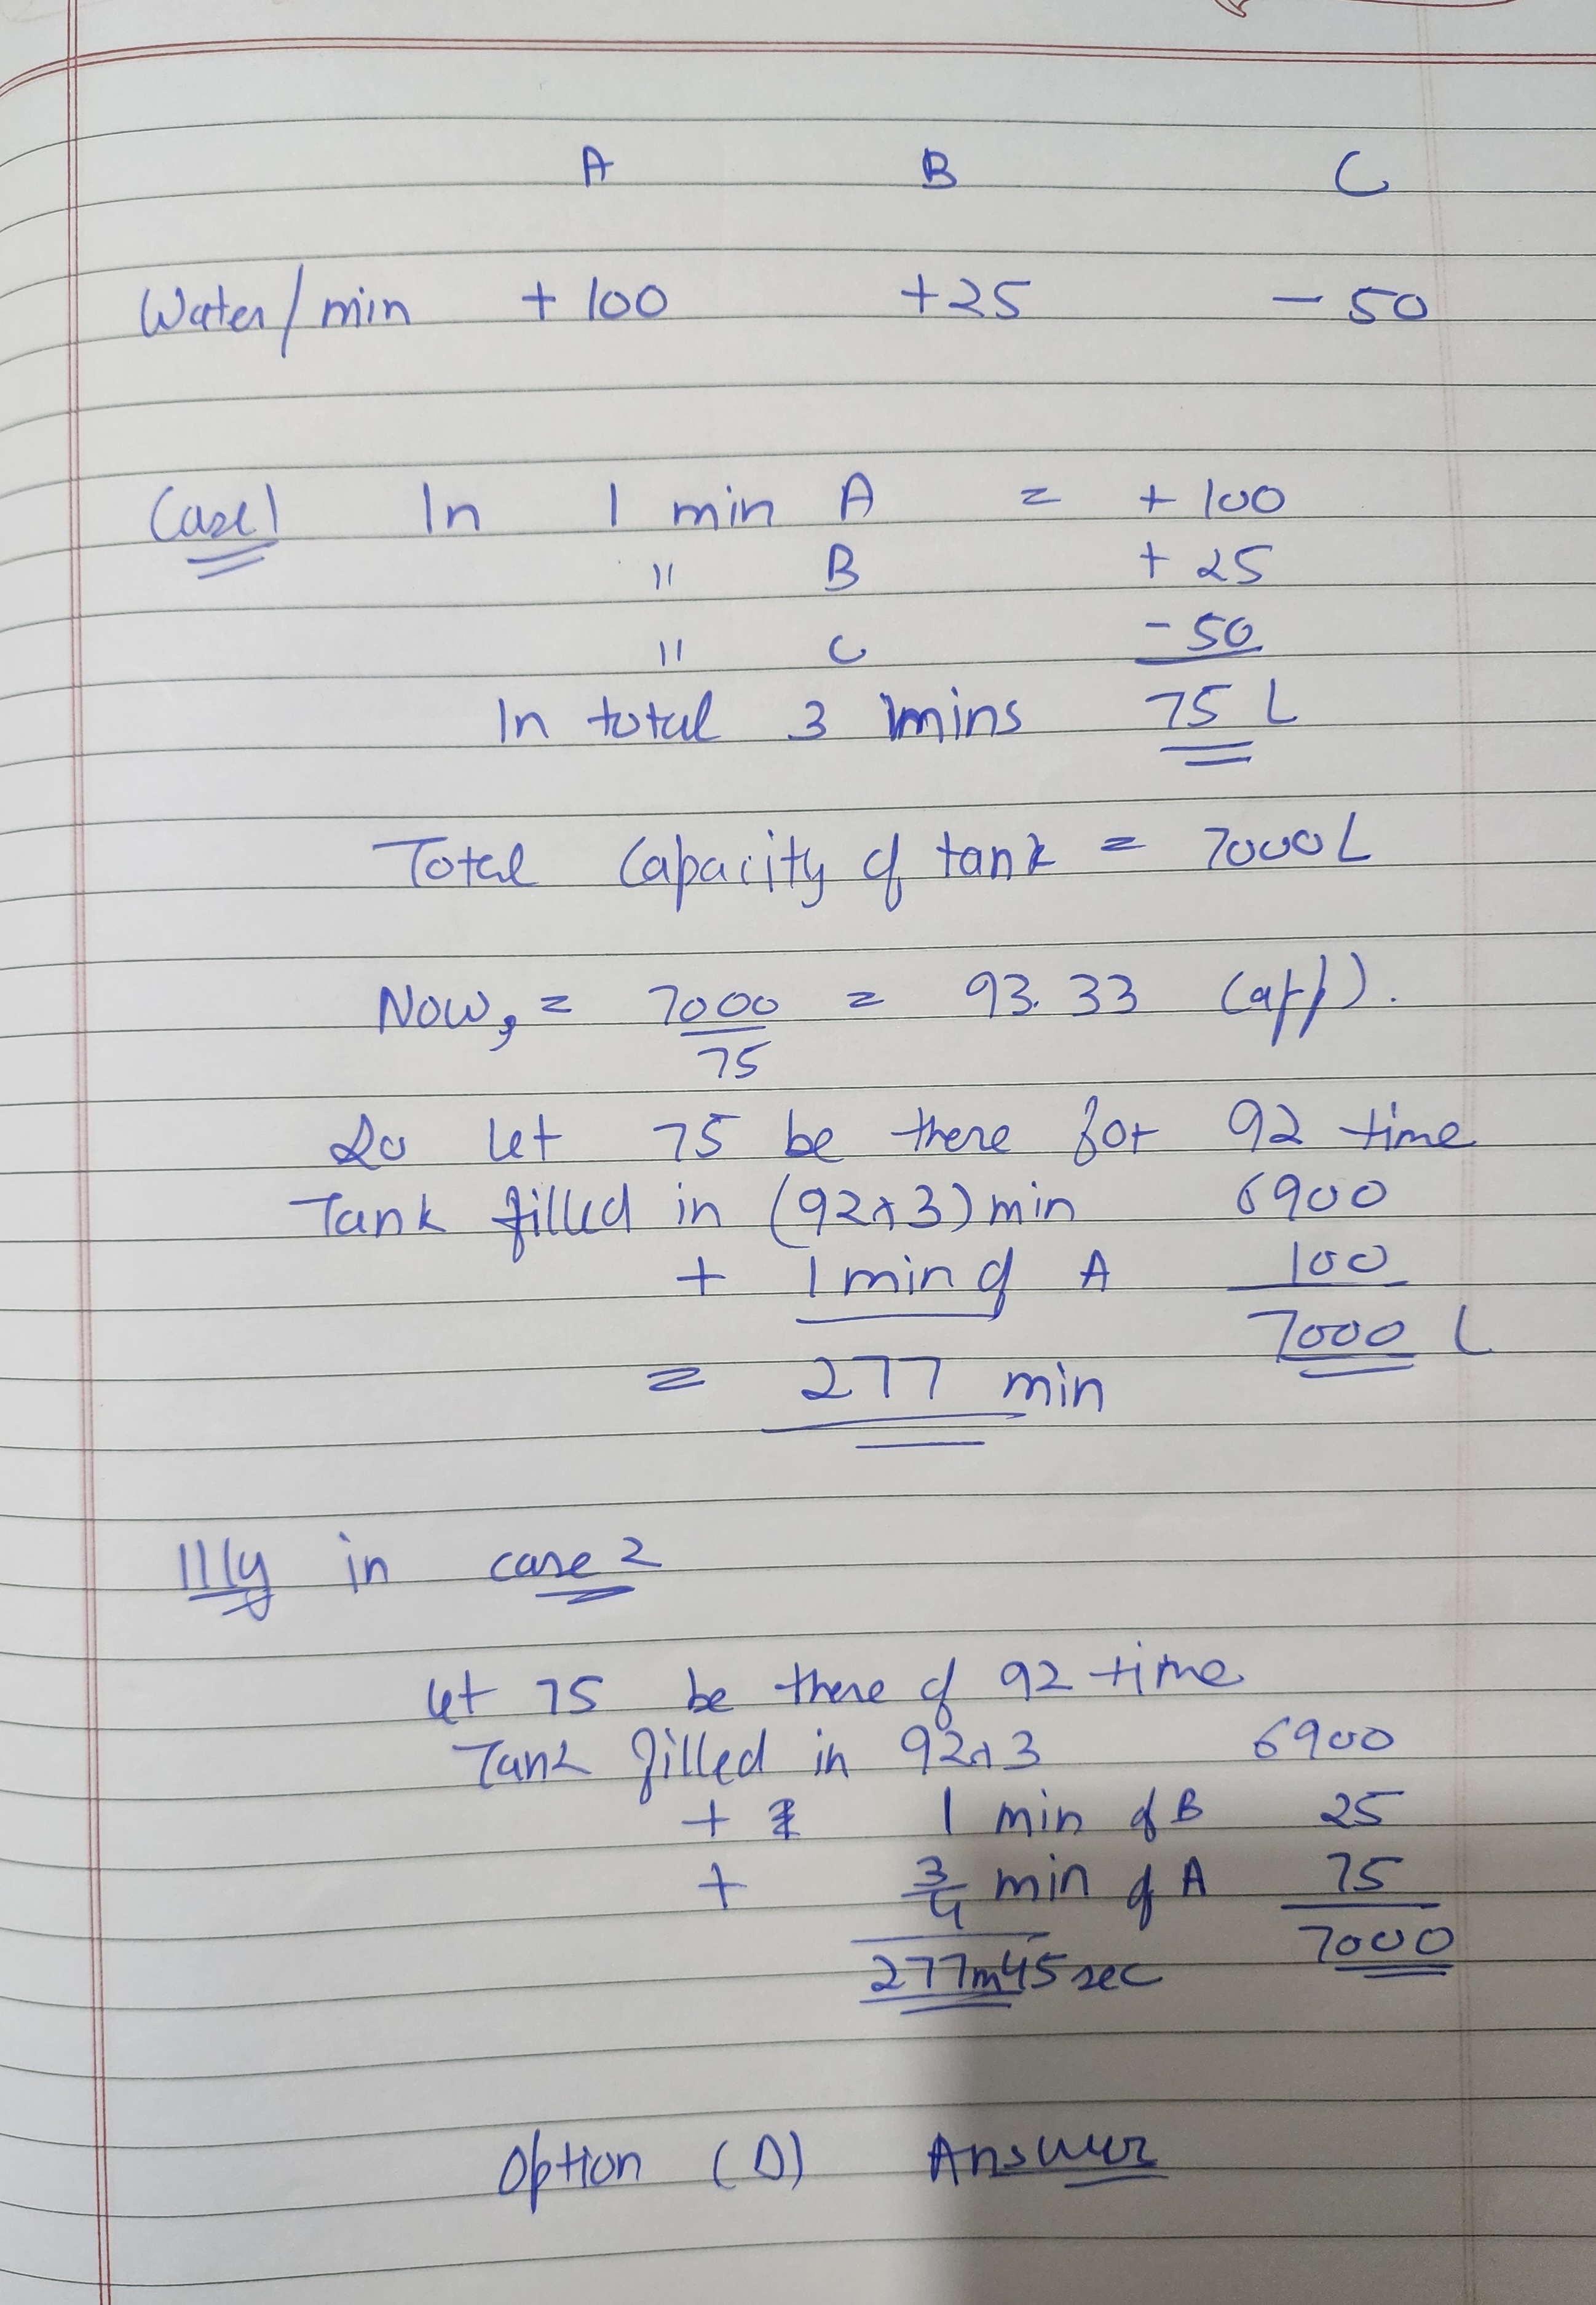 A B C
Water/min +100 +25 -50
Case 1 In 1 min A = +100
" B +25
" C -50
In total 3 mins 75 L
Total Capacity of tank = 7000L
Now, = 7000/75 = 93.33 (app).
So let 75 be there for 92 time
Tank filled in (92x3) min 6900
+ 1 min of A 100
7000 L
= 277 min
111ly in case 2
let 75 be there of 92 time
Tank filled in 92x3 6900
+ 1 min of B 25
+ 3/4 min of A 75
7000
277m45 sec
Option (D) Answer